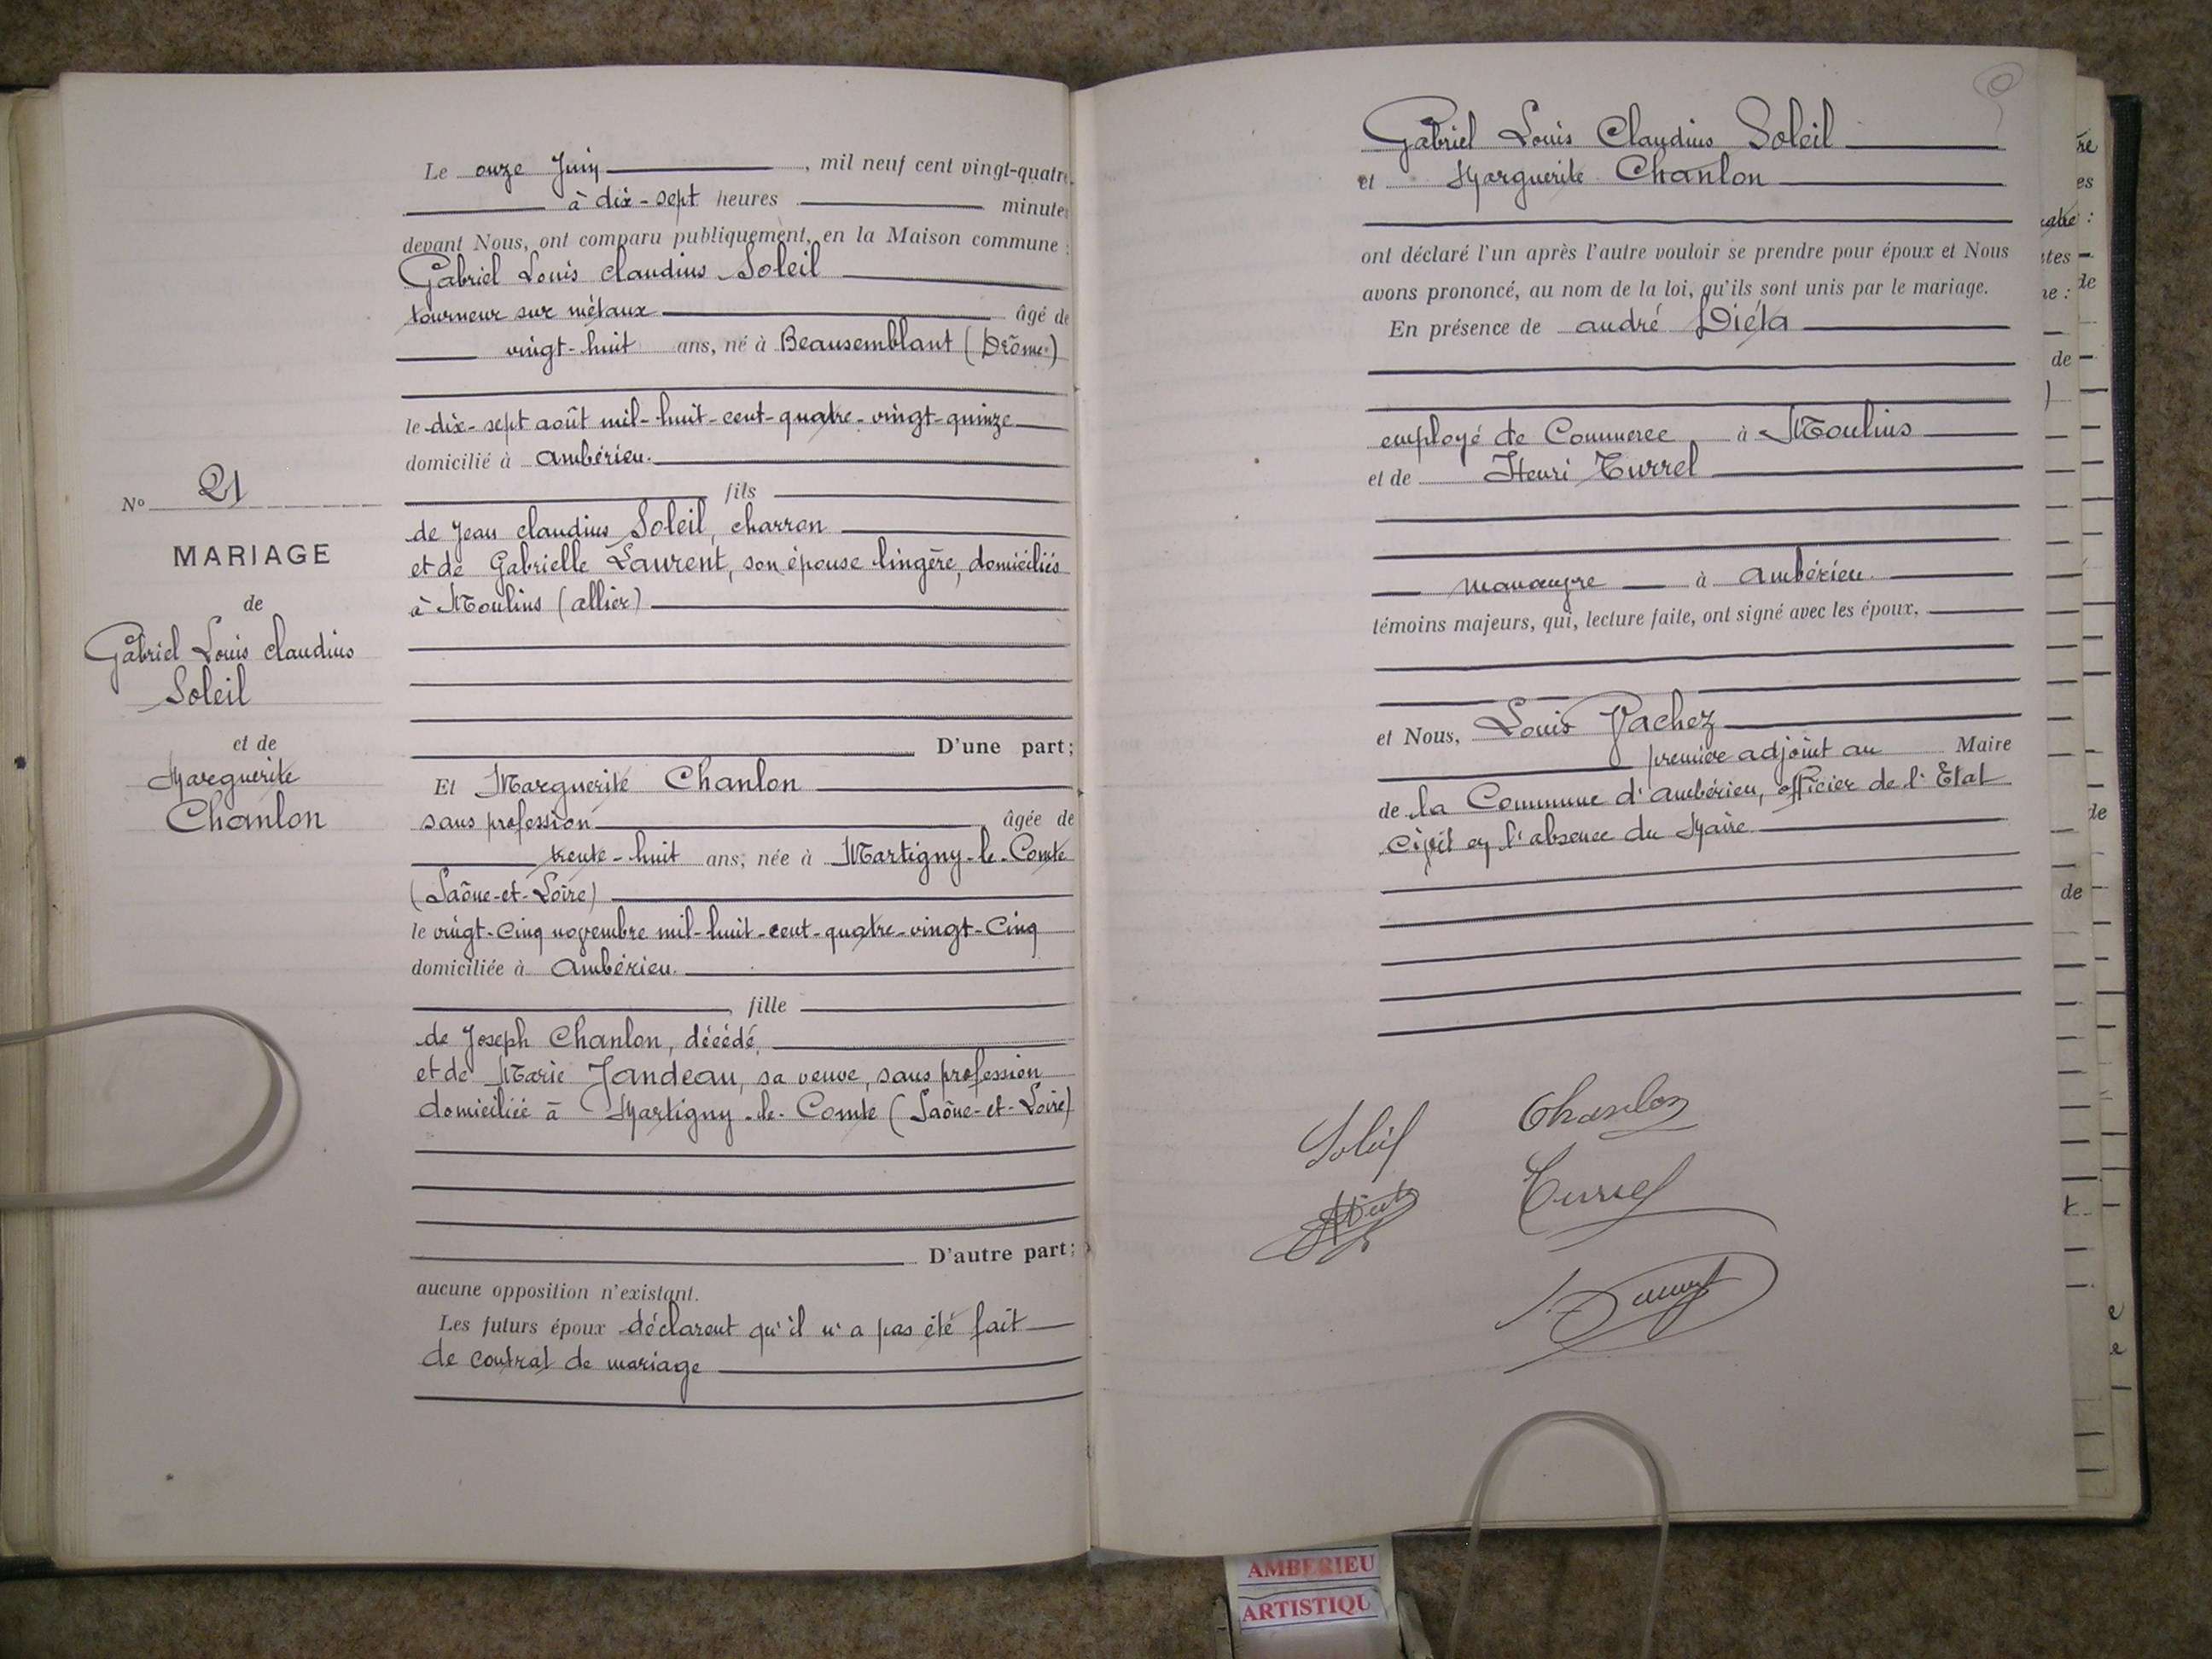 N° 21
MARIAGE
de
Gabriel Louis claudius
Soleil
et de
Marguerite
Chanlon
Le onze Juin, mil neuf cent vingt-quatre,
à dix-sept heures minutes
devant Nous, ont comparu publiquement, en la Maison commune :
Gabriel Louis claudius Soleil
tourneur sur métaux âgé de
vingt-huit ans, né à Beausemblant (Drôme)
le dix-sept août mil-huit-cent-quatre-vingt-quinze
domicilié à ambérieu.
fils
de Jean claudius Soleil, charron
et de Gabrielle Laurent, son épouse lingère, domiciliés
à Moulins (allier)
D'une part;
Et Marguerite Chanlon
sans profession âgée de
trente-huit ans, née à Martigny-le-Comte
(Saône-et-Loire)
le vingt-cinq novembre mil-huit-cent-quatre-vingt-Cinq
domiciliée à ambérieu.
fille
de Joseph Chanlon, décédé,
et de Marie Jandeau, sa veuve, sans profession
domiciliée à Martigny-le-Comte (Saône-et-Loire)
D'autre part;
aucune opposition n'existant.
Les futurs époux déclarent qu'il n'a pas été fait
de contrat de mariage
Gabriel Louis Claudius Soleil
et Marguerite Chanlon
ont déclaré l'un après l'autre vouloir se prendre pour époux et Nous
avons prononcé, au nom de la loi, qu'ils sont unis par le mariage.
En présence de andré Diéta
employé de Commerce à Moulins
et de Henri Turrel
manœuvre à ambérieu.
témoins majeurs, qui, lecture faite, ont signé avec les époux,
et Nous, Louis Pachez
premier adjoint au Maire
de la Commune d'ambérieu, officier de l'Etat
Civil en l'absence du Maire
Soleil
Chanlon
Turrel
AMBERIEU
ARTISTIQU